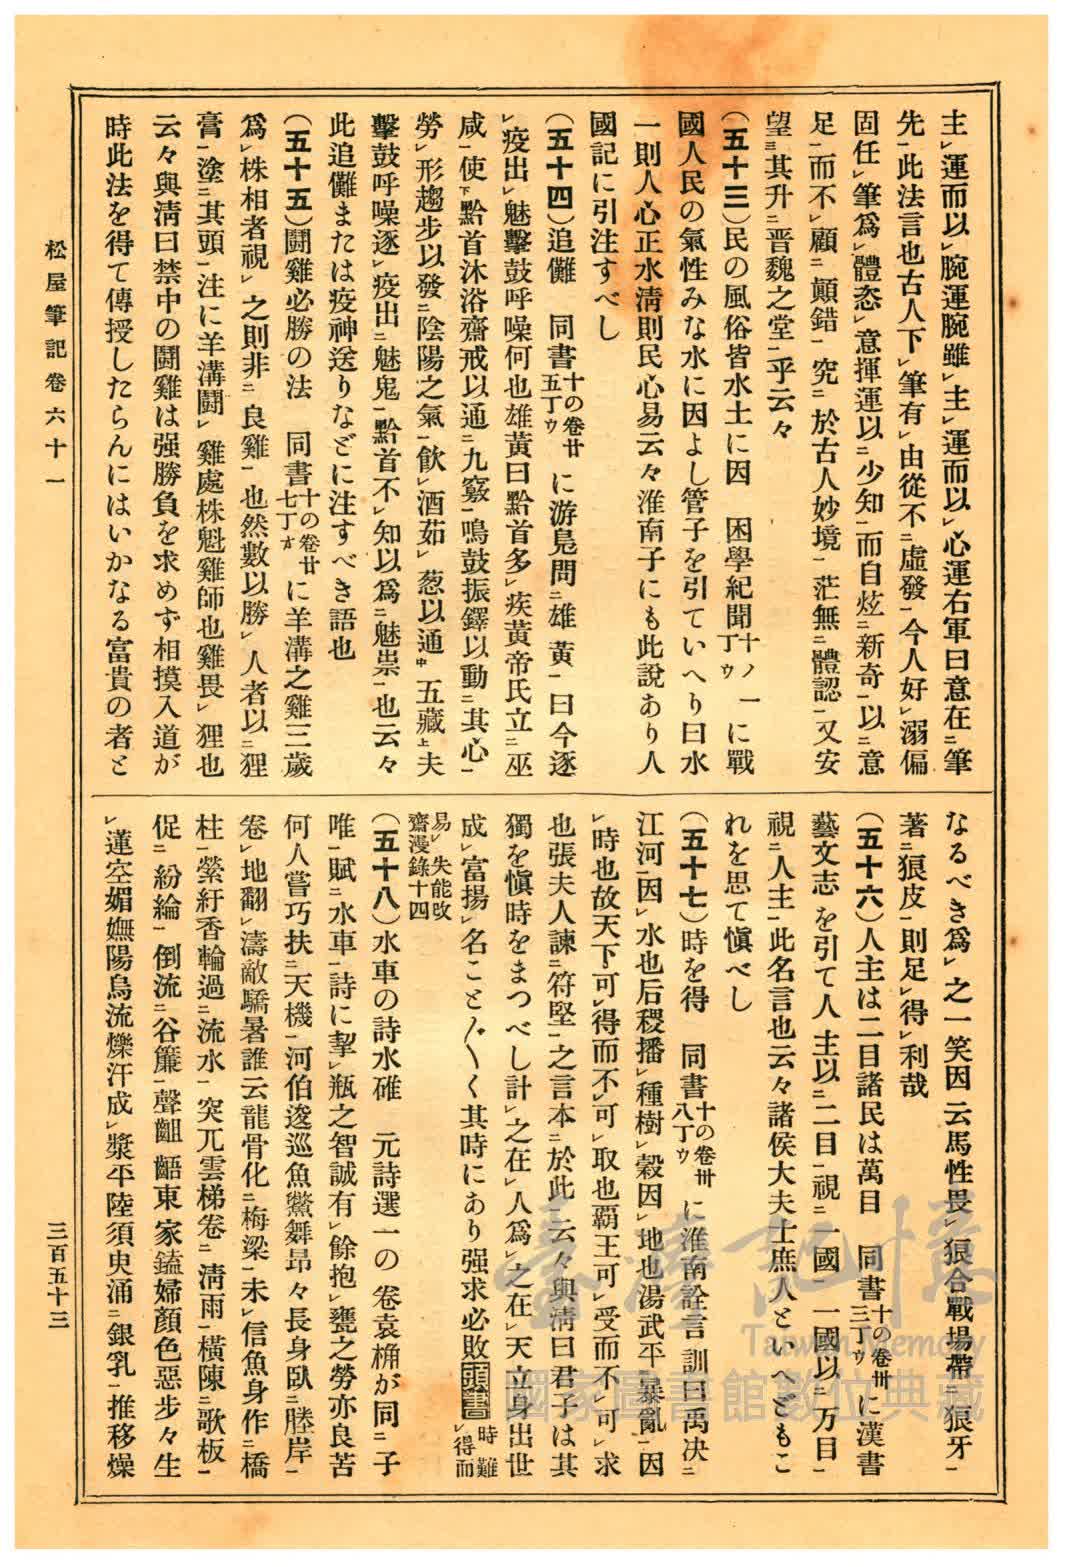 主レ運而以レ腕運腕雖レ主レ運而以レ心運右軍曰意在二筆
先一此法言也古人下レ筆有レ由從不二虛發一今人好レ溺偏
固任レ筆爲レ體恣レ意揮運以二少知一而自炫二新奇一以二意
足一而不レ顧二顛錯一究二於古人妙境一茫無二體認一又安
望三其升二晋魏之堂一乎云々
(五十三)民の風俗皆水土に因　困學紀聞十ノ一丁ウに戰
國人民の氣性みな水に因よし管子を引ていへり曰水
一則人心正水淸則民心易云々淮南子にも此說あり人
國記に引注すべし
(五十四)追儺　同書十の卷廿五丁ウに游鳧問二雄黃一曰今逐
レ疫出レ魅擊鼓呼噪何也雄黃曰黔首多レ疾黃帝氏立二巫
咸一使下黔首沐浴齋戒以通二九竅一鳴鼓振鐸以動二其心一
勞レ形趨步以發二陰陽之氣一飮レ酒茹レ葱以通中五藏上夫
擊鼓呼噪逐レ疫出二魅鬼一黔首不レ知以爲二魅祟一也云々
此追儺または疫神送りなどに注すべき語也
(五十五)鬪雞必勝の法　同書十の卷廿七丁オに羊溝之雞三歲
爲レ株相者視レ之則非二良雞一也然數以勝レ人者以二狸
膏一塗二其頭一注に羊溝鬪レ雞處株魁雞師也雞畏レ狸也
云々與淸曰禁中の鬪雞は强勝負を求めず相摸入道が
時此法を得て傳授したらんにはいかなる富貴の者と
なるべき爲レ之一笑因云馬性畏レ狼合戰場帶二狼牙一
著二狼皮一則足レ得レ利哉
(五十六)人主は二目諸民は萬目　同書十の卷卅三丁ウに漢書
藝文志を引て人主以二二目一視二一國一一國以二万目一
視二人主一此名言也云々諸侯大夫士庶人といへどもこ
れを思て愼べし
(五十七)時を得　同書十の卷卅八丁ウに淮南詮言訓曰禹决二
江河一因レ水也后稷播レ種樹レ穀因レ地也湯武平二暴亂一因
レ時也故天下可レ得而不レ可レ取也覇王可レ受而不レ可レ求
也張夫人諫二符堅一之言本二於此一云々與淸曰君子は其
獨を愼時をまつべし計レ之在レ人爲レ之在レ天立身出世
成レ富揚レ名こと〴〵く其時にあり强求必敗頭書時難レ得而
易レ失能改齋漫錄十四
(五十八)水車の詩水碓　元詩選一の卷袁桷が同二子
唯一賦二水車一詩に挈レ瓶之智誠有レ餘抱レ甕之勞亦良苦
何人嘗巧扶二天機一河伯逡巡魚鱉舞昂々長身臥二塍岸一
卷レ地翻レ濤敵驕暑誰云龍骨化二梅梁一未レ信魚身作二橋
柱一縈紆香輪過二流水一突兀雲梯卷二淸雨一橫陳二歌板一
促二紛綸一倒流二谷簾一聲齟齬東家鎰婦顏色惡步々生
レ蓮空媚嫵陽烏流爍汗成レ漿平陸須臾涌二銀乳一推移燥
松屋筆記卷六十一
三百五十三
臺灣記憶
Taiwan Memory
國家圖書館數位典藏